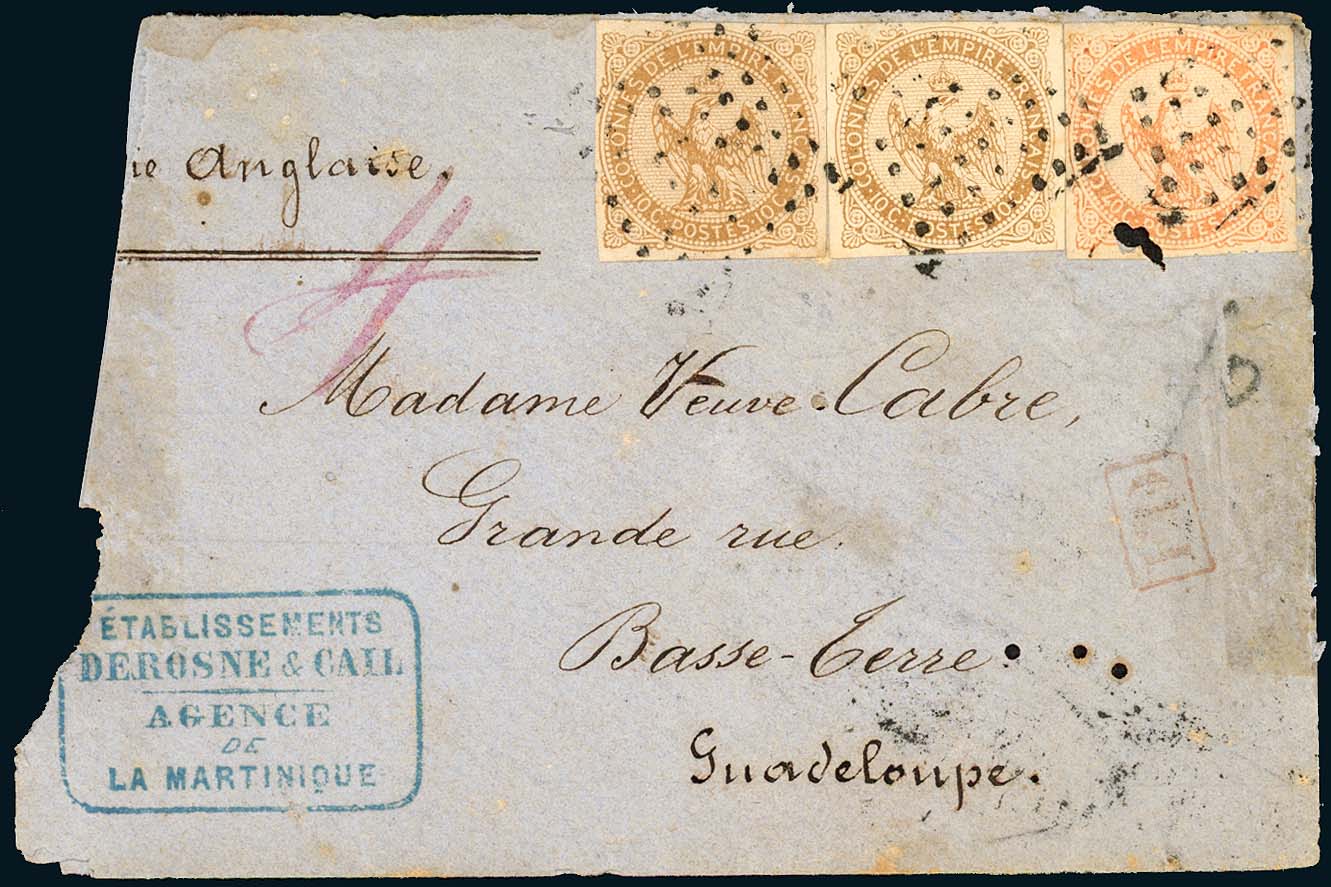 COLONIES DE L'EMPIRE FRANÇAIS·10C·POSTES·10C·
COLONIES DE L'EMPIRE FRANÇAIS·10C·POSTES·10C·
COLONIES DE L'EMPIRE FRANÇAIS·40C·POSTES
ie Anglaise.
4
Madame Veuve Cabre,
Grande rue.
P.D.
Basse-Terre.
Guadeloupe.
ÉTABLISSEMENTS
DEROSNE & CAIL
AGENCE
DE
LA MARTINIQUE